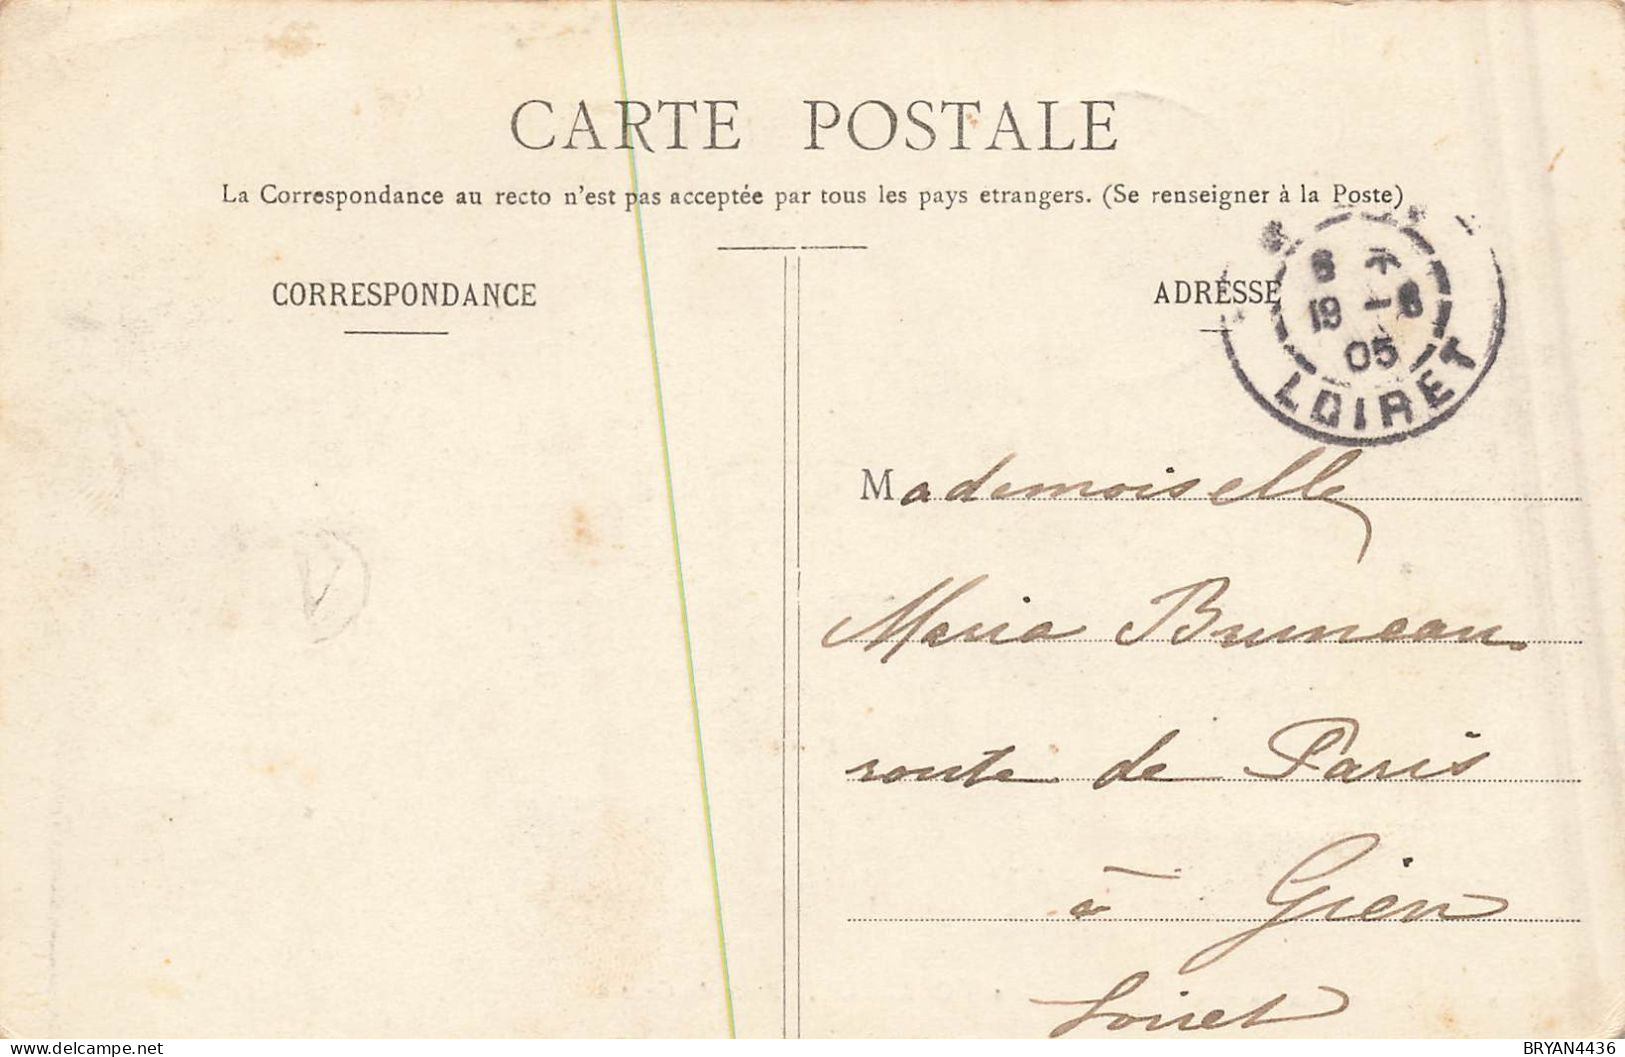 CARTE POSTALE
La Correspondance au recto n'est pas acceptée par tous les pays etrangers. (Se renseigner à la Poste)
CORRESPONDANCE
ADRESSE
19 - 8
05
LOIRET
Mademoiselle
Maria Bruneau
route de Paris
à Gien
Loiret
delcampe.net
BRYAN4436